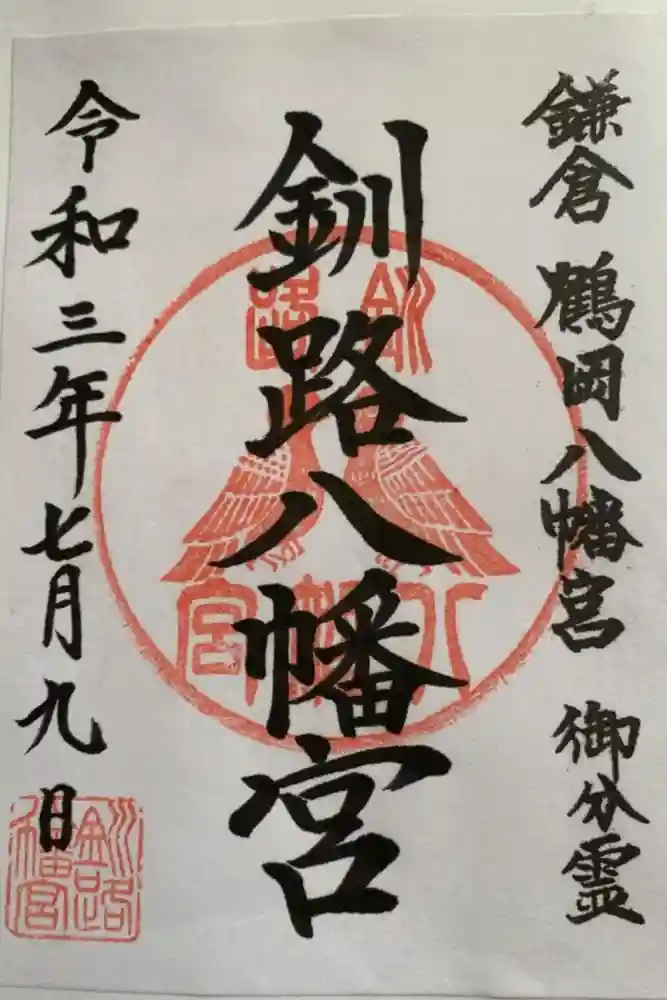 鎌倉 鶴岡八幡宮 御分霊
釧路八幡宮
釧路
八幡宮
令和三年七月九日
釧路
八幡宮